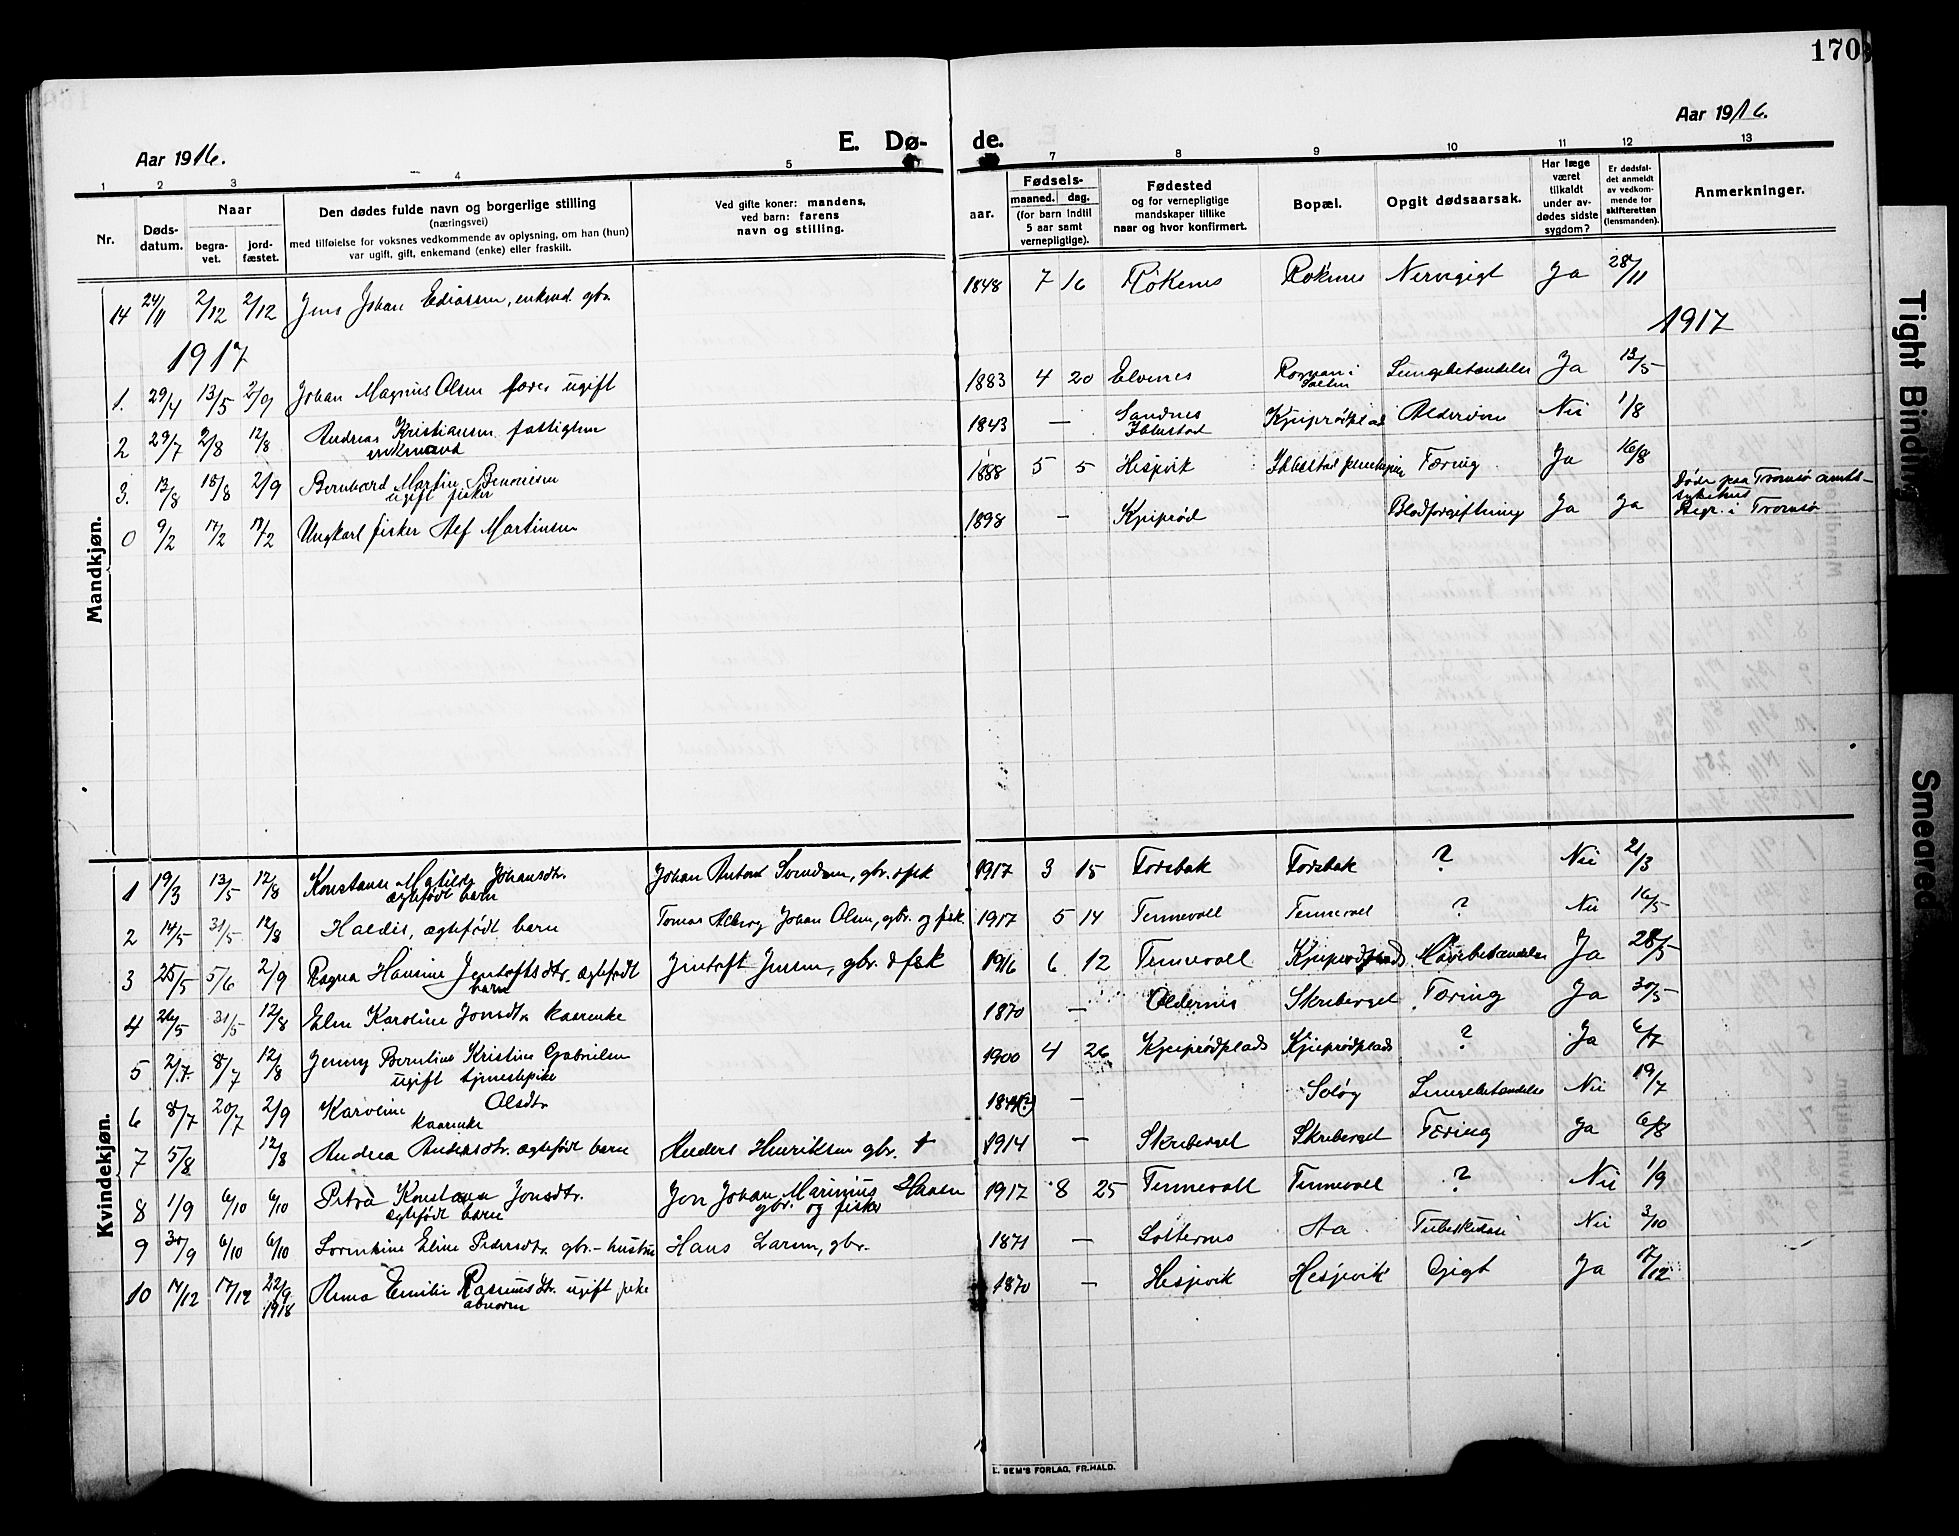 170
Aar 1916.
E. Dø- de.
Aar 1916.
1 2 3 4 5 7 8 9 10 11 12 13
Nr.
Døds-
datum.
Naar
begra-
vet.
jord-
fæstet.
Den dødes fulde navn og borgerlige stilling
(næringsvei)
med tilføielse for voksnes vedkommende av oplysning, om han (hun)
var ugift, gift, enkemand (enke) eller fraskilt.
Ved gifte koner: mandens,
ved barn: farens
navn og stilling.
Fødsels-
aar. maaned. dag.
(for barn indtil
5 aar samt
vernepligtige).
Fødested
og for vernepligtige
mandskaper tillike
naar og hvor konfirmert.
Bopæl.
Opgit dødsaarsak.
Har læge
været
tilkaldt
under av-
dødes sidste
sygdom?
Er dødsfal-
det anmeldt
av vedkom-
mende for
skifteretten
(lensmanden).
Anmerkninger.
Mandkjøn.
14 24/11 2/12 2/12 Jens Johan Ediassen, enkmd. gbr. 1848 7 16 Røkenes Røkenes Nervegigt Ja 28/11
1917 1917
1. 29/4 13/5 2/9 Johan Magnus Olsen ugift 1883 4 20 Elvenes Lungebetændelse Ja 13/5
2 29/7 2/8 12/8 Andreas Kristiansen fattiglem
enkmand 1843 — Sandnes
Ibbestad Kjeiprødplad Ne 1/8
3. 13/8 18/8 2/9 Bernhard Martin Benonisen
ugift fisker 1888 5 5 Hesjevik Ibbestad Tæring Ja 16/8
0 9/2 17/2 18/2 Ungkarl fisker Alf Martinsen 1898 — Kjeiprød Blodforgiftning Ja Ja Døde paa Tromsø amts-
sykehus
Begr. i Tromsø
Kvindekjøn.
1 19/3 13/5 12/8 Konstanse Matilde Johansdtr.
ægtefødt barn Johan Antont Svendsen, gbr. o fsk 1917 3 15 Forsbak Forsbak ? Nei 21/3
2 14/5 31/5 12/8 Haldis, ægtefødt barn Tomas Johan Olsen, gbr. og fisk. 1917 5 14 Tennevoll Tennevol ? Nei 16/5
3 25/5 5/6 2/9 Ragna Hansine Jentoftsdtr. ægtefødt
barn Jentoft Jensen, gbr. o fsk 1916 6 12 Tennevoll Kjeiprødplads Ja 28/5
4 26/5 31/5 12/8 Elen Karoline Jonsdtr. kaarenke 1870 — Oldernes Skreberget Tæring Ja 30/5
5 2/7 8/7 12/8 Jenny Berntine Kristine Gabrielsen
ugift tjenestepike 1900 4 26 Kjeiprødplads Kjeiprødplads ? Ja 6/7
6 8/7 20/7 2/9 Karoline Olsdtr.
kaarenke — Soløy Lungebetændelse Nei 19/7
7 5/8 12/8 Andrea Andersdtr. ægtefødt barn Anders Henriksen gbr. † 1914 — Skreberget Skreberget Tæring Ja 6/8
8 1/9 6/10 6/10 Petra Konstanse Jonsdtr.
ægtefødt barn Jon Johan Marinius Hansen
gbr. og fisker 1917 8 25 Tennevoll Tennevoll ? Nei 1/9
9 30/9 6/10 6/10 Lorentine Eline Pedersdtr. gbr.-hustru Hans Larsen, gbr. 1871 — Aa Tuberkulose Nei 3/10
10 14/12 17/12 22/9
1918 Anna Emilie Rasmusdtr. ugift pike
abnorm 1870 — Hesjevik Hesjevik Gigt Ja 17/12
L. SEM'S FORLAG, FR.HALD.
Tight Binding
Smeared